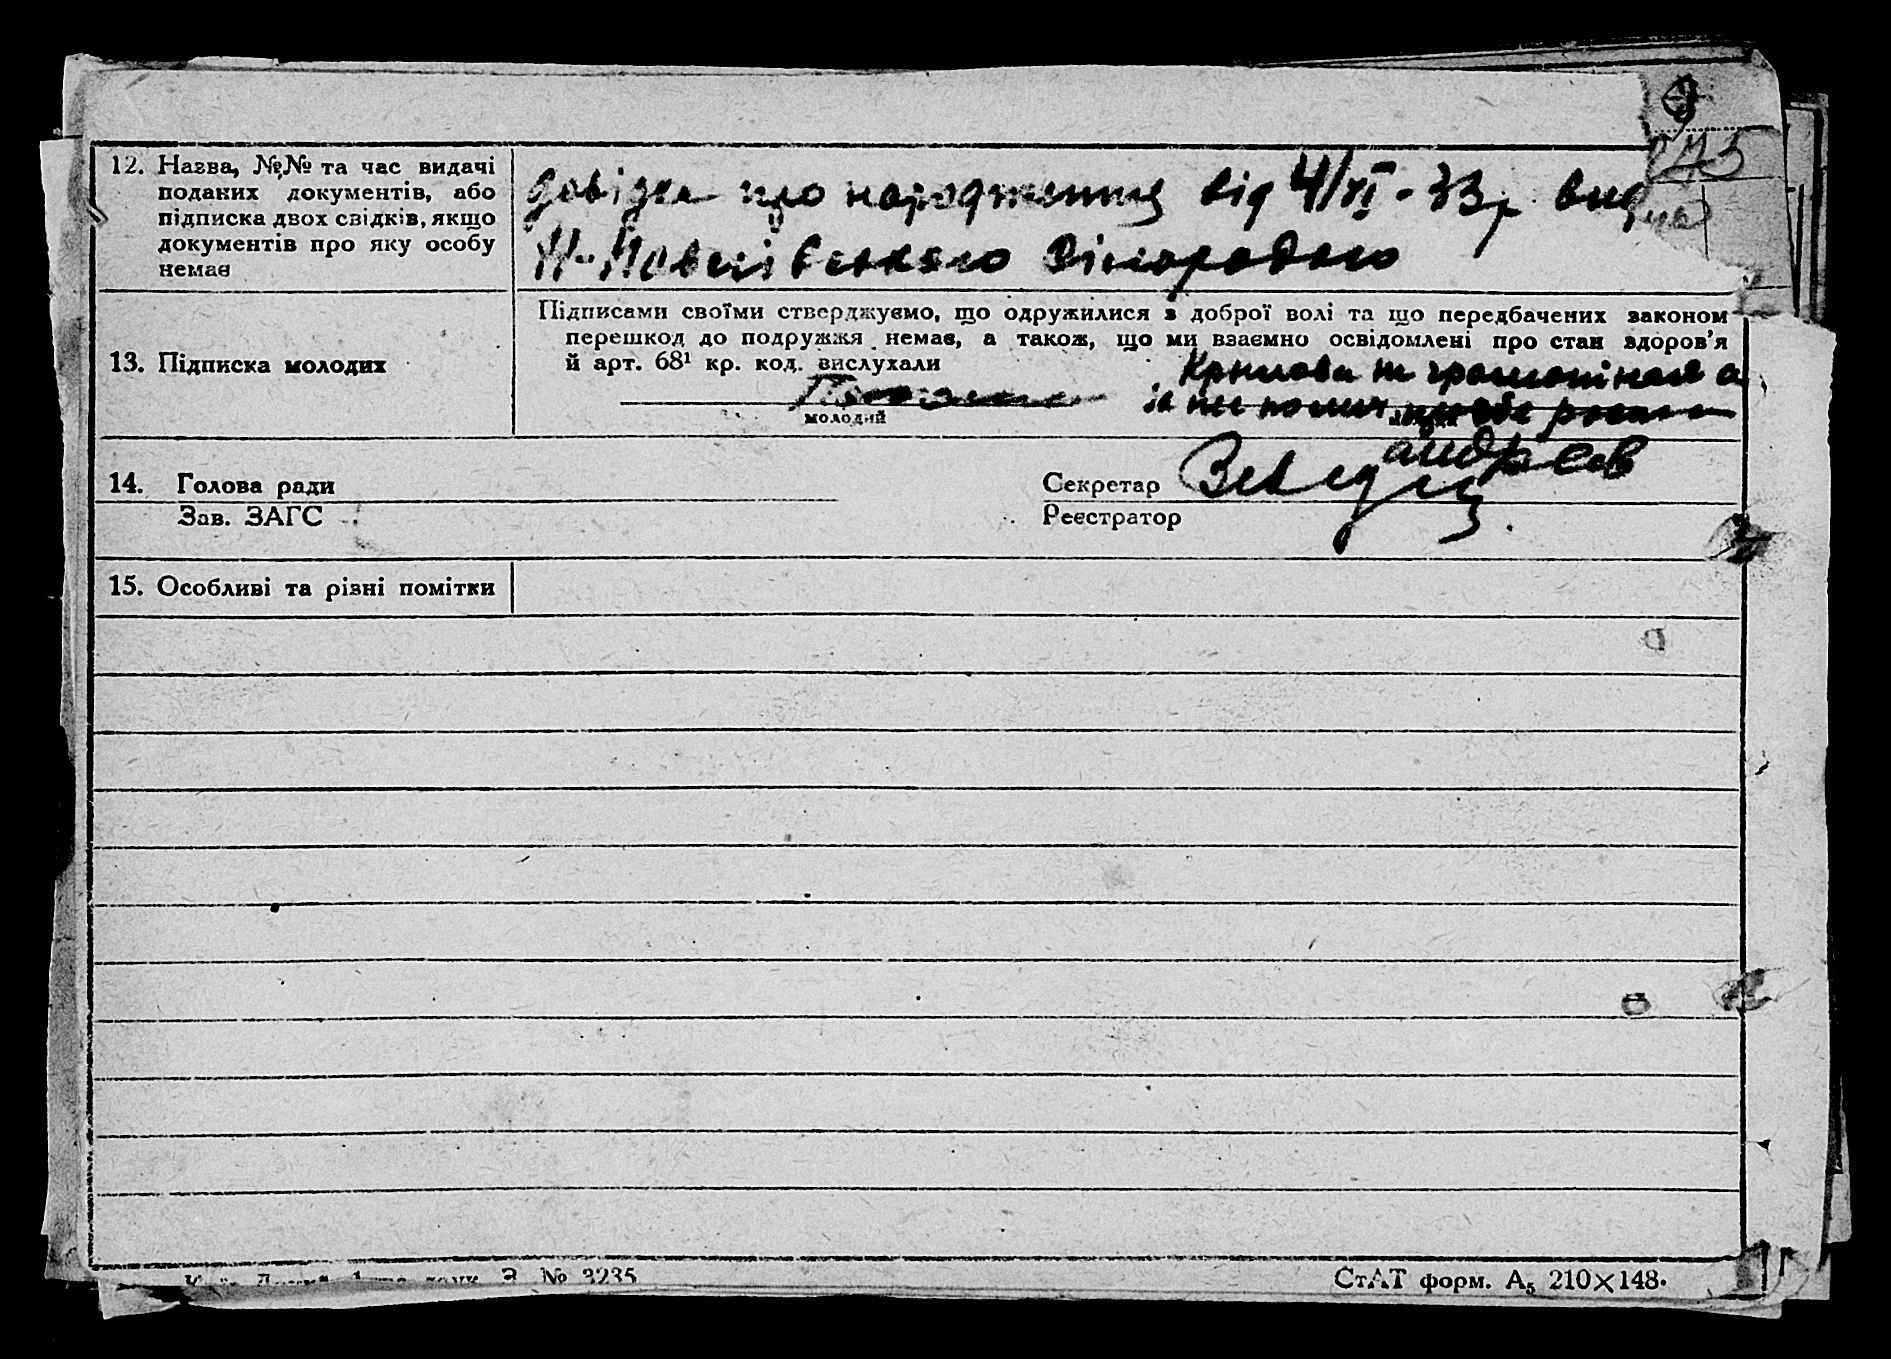 175
12. Назва, №№ та час видачі
поданих документів, або
підписка двох свідків, якщо
документів про яку особу
немає
довідка про народження від 4/XI-33р.
13. Підписка молодих
Підписами своїми стверджуємо, що одружилися з доброї волі та що передбачених законом
перешкод до подружжя немає, а також, що ми взаємно освідомлені про стан здоров'я
й арт. 68¹ кр. код. вислухали
Крилова не грамотная а
за
молодий
Андреев
14. Голова ради
Секретар
Зав. ЗАГС
Реєстратор
15. Особливі та різні помітки
З. № 3235
СтАТ форм. А₅ 210×148.